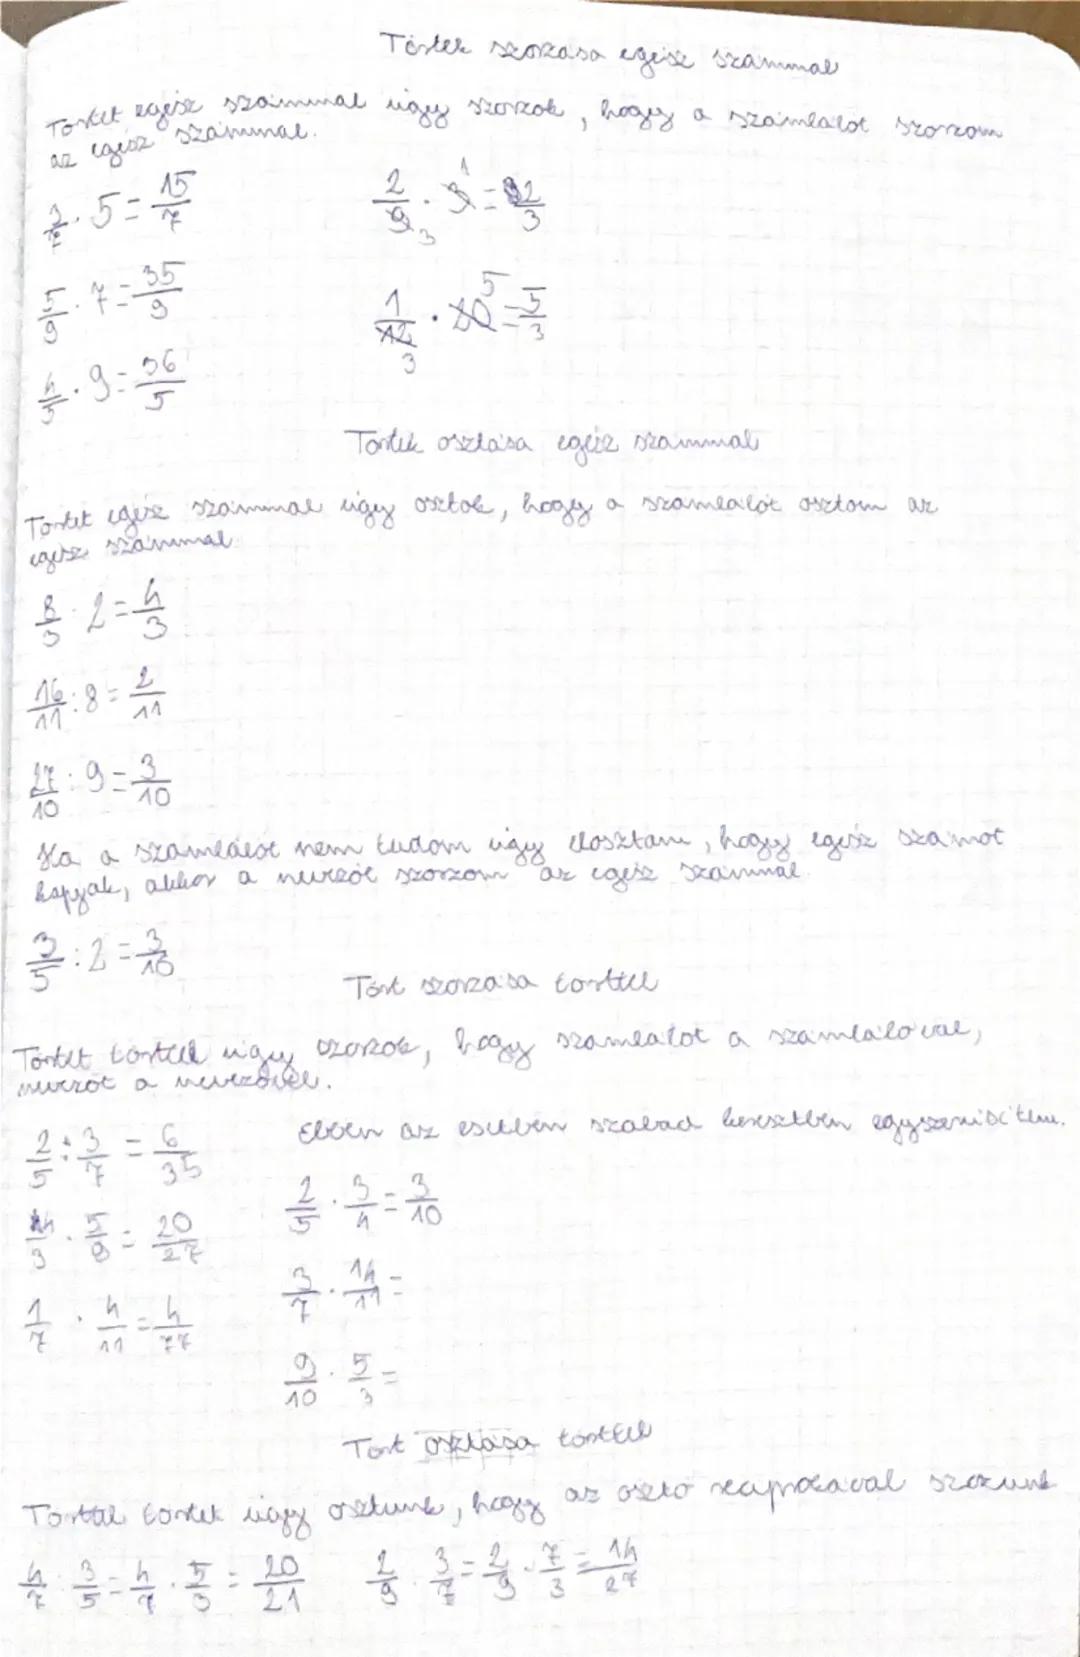 Törtek szorzása egész számmal
Törtet egész számmal úgy szorzok, hogy a számlálót szorzom
az egész számmal.
3/7 · 5 = 15/7
2/9 · 3 = 2/3
5/9 · 7 = 35/9
1/12 · 20 = 5/3
4/5 · 9 = 36/5
Törtek osztása egész számmal
Törtet egész számmal úgy osztok, hogy a számlálót osztom az
egész számmal.
8/3 : 2 = 4/3
16/11 : 8 = 2/11
27/10 : 9 = 3/10
Ha a számlálót nem tudom úgy elosztani, hogy egész számot
kapjak, akkor a nevezőt szorzom az egész számmal.
3/5 : 2 = 3/10
Tört szorzása törttel
Törtet törttel úgy szorzok, hogy számlálót a számlálóval,
nevezőt a nevezővel.
2/5 · 3/7 = 6/35
Ebben az esetben szabad keresztben egyszerűsíteni.
4/3 · 5/9 = 20/27
2/5 · 3/4 = 3/10
1/7 · 4/11 = 4/77
3/7 · 14/11 =
9/10 · 5/3 =
Tört osztása törttel
Törttel törtet úgy osztunk, hogy az osztó reciprokával szorzunk
4/7 : 3/5 = 4/7 · 5/3 = 20/21
2/9 : 3/7 = 2/9 · 7/3 = 14/27